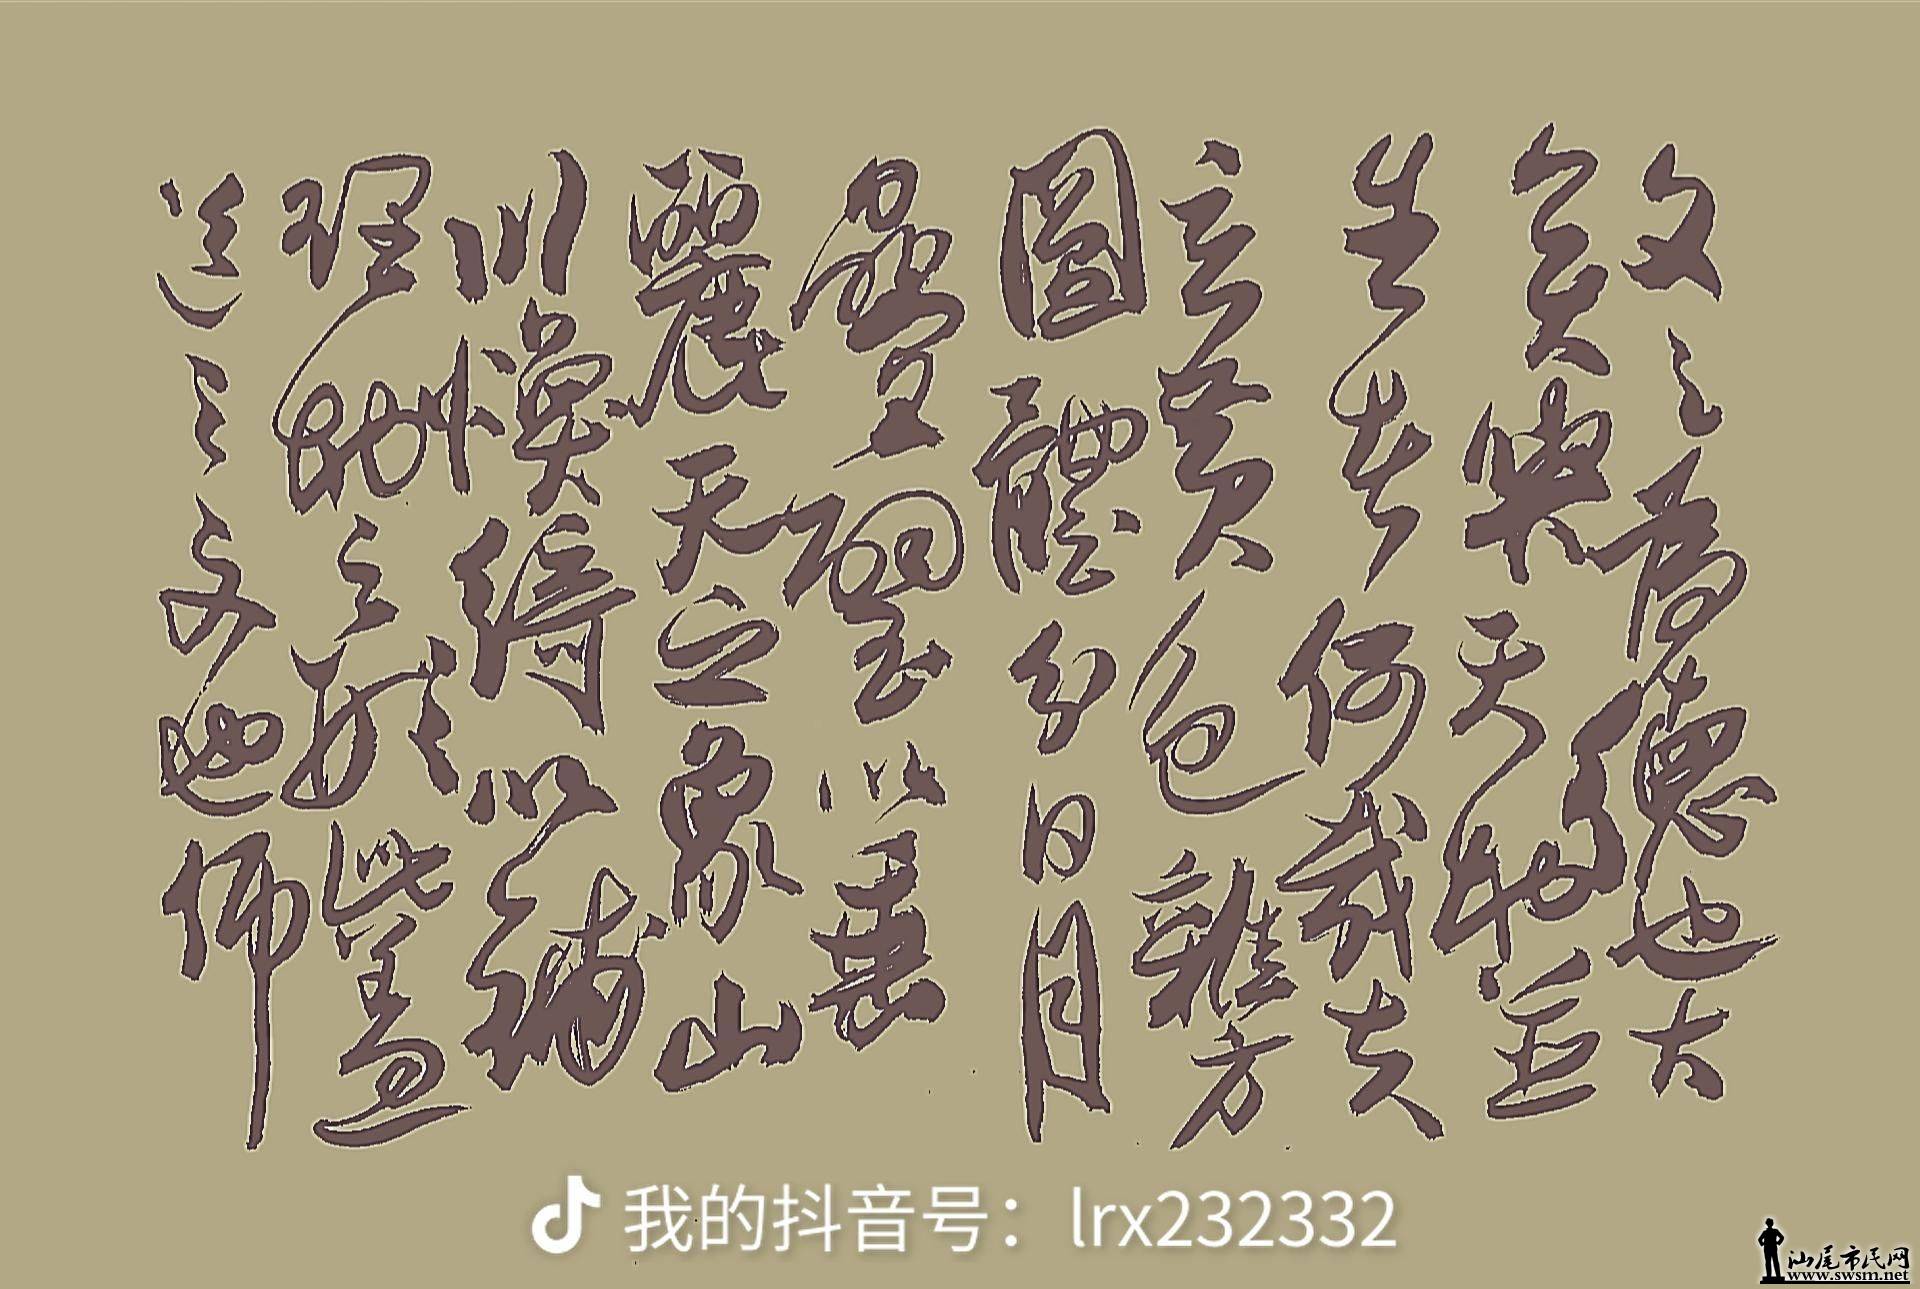 文之為德也大
矣與天地並
生者何哉夫
玄黃色雜方
圓體分日月
疊璧以垂
麗天之象山
川煥綺以鋪
理地之形此蓋
道之文也仰
我的抖音号：lrx232332
汕尾市民网
www.swsm.net